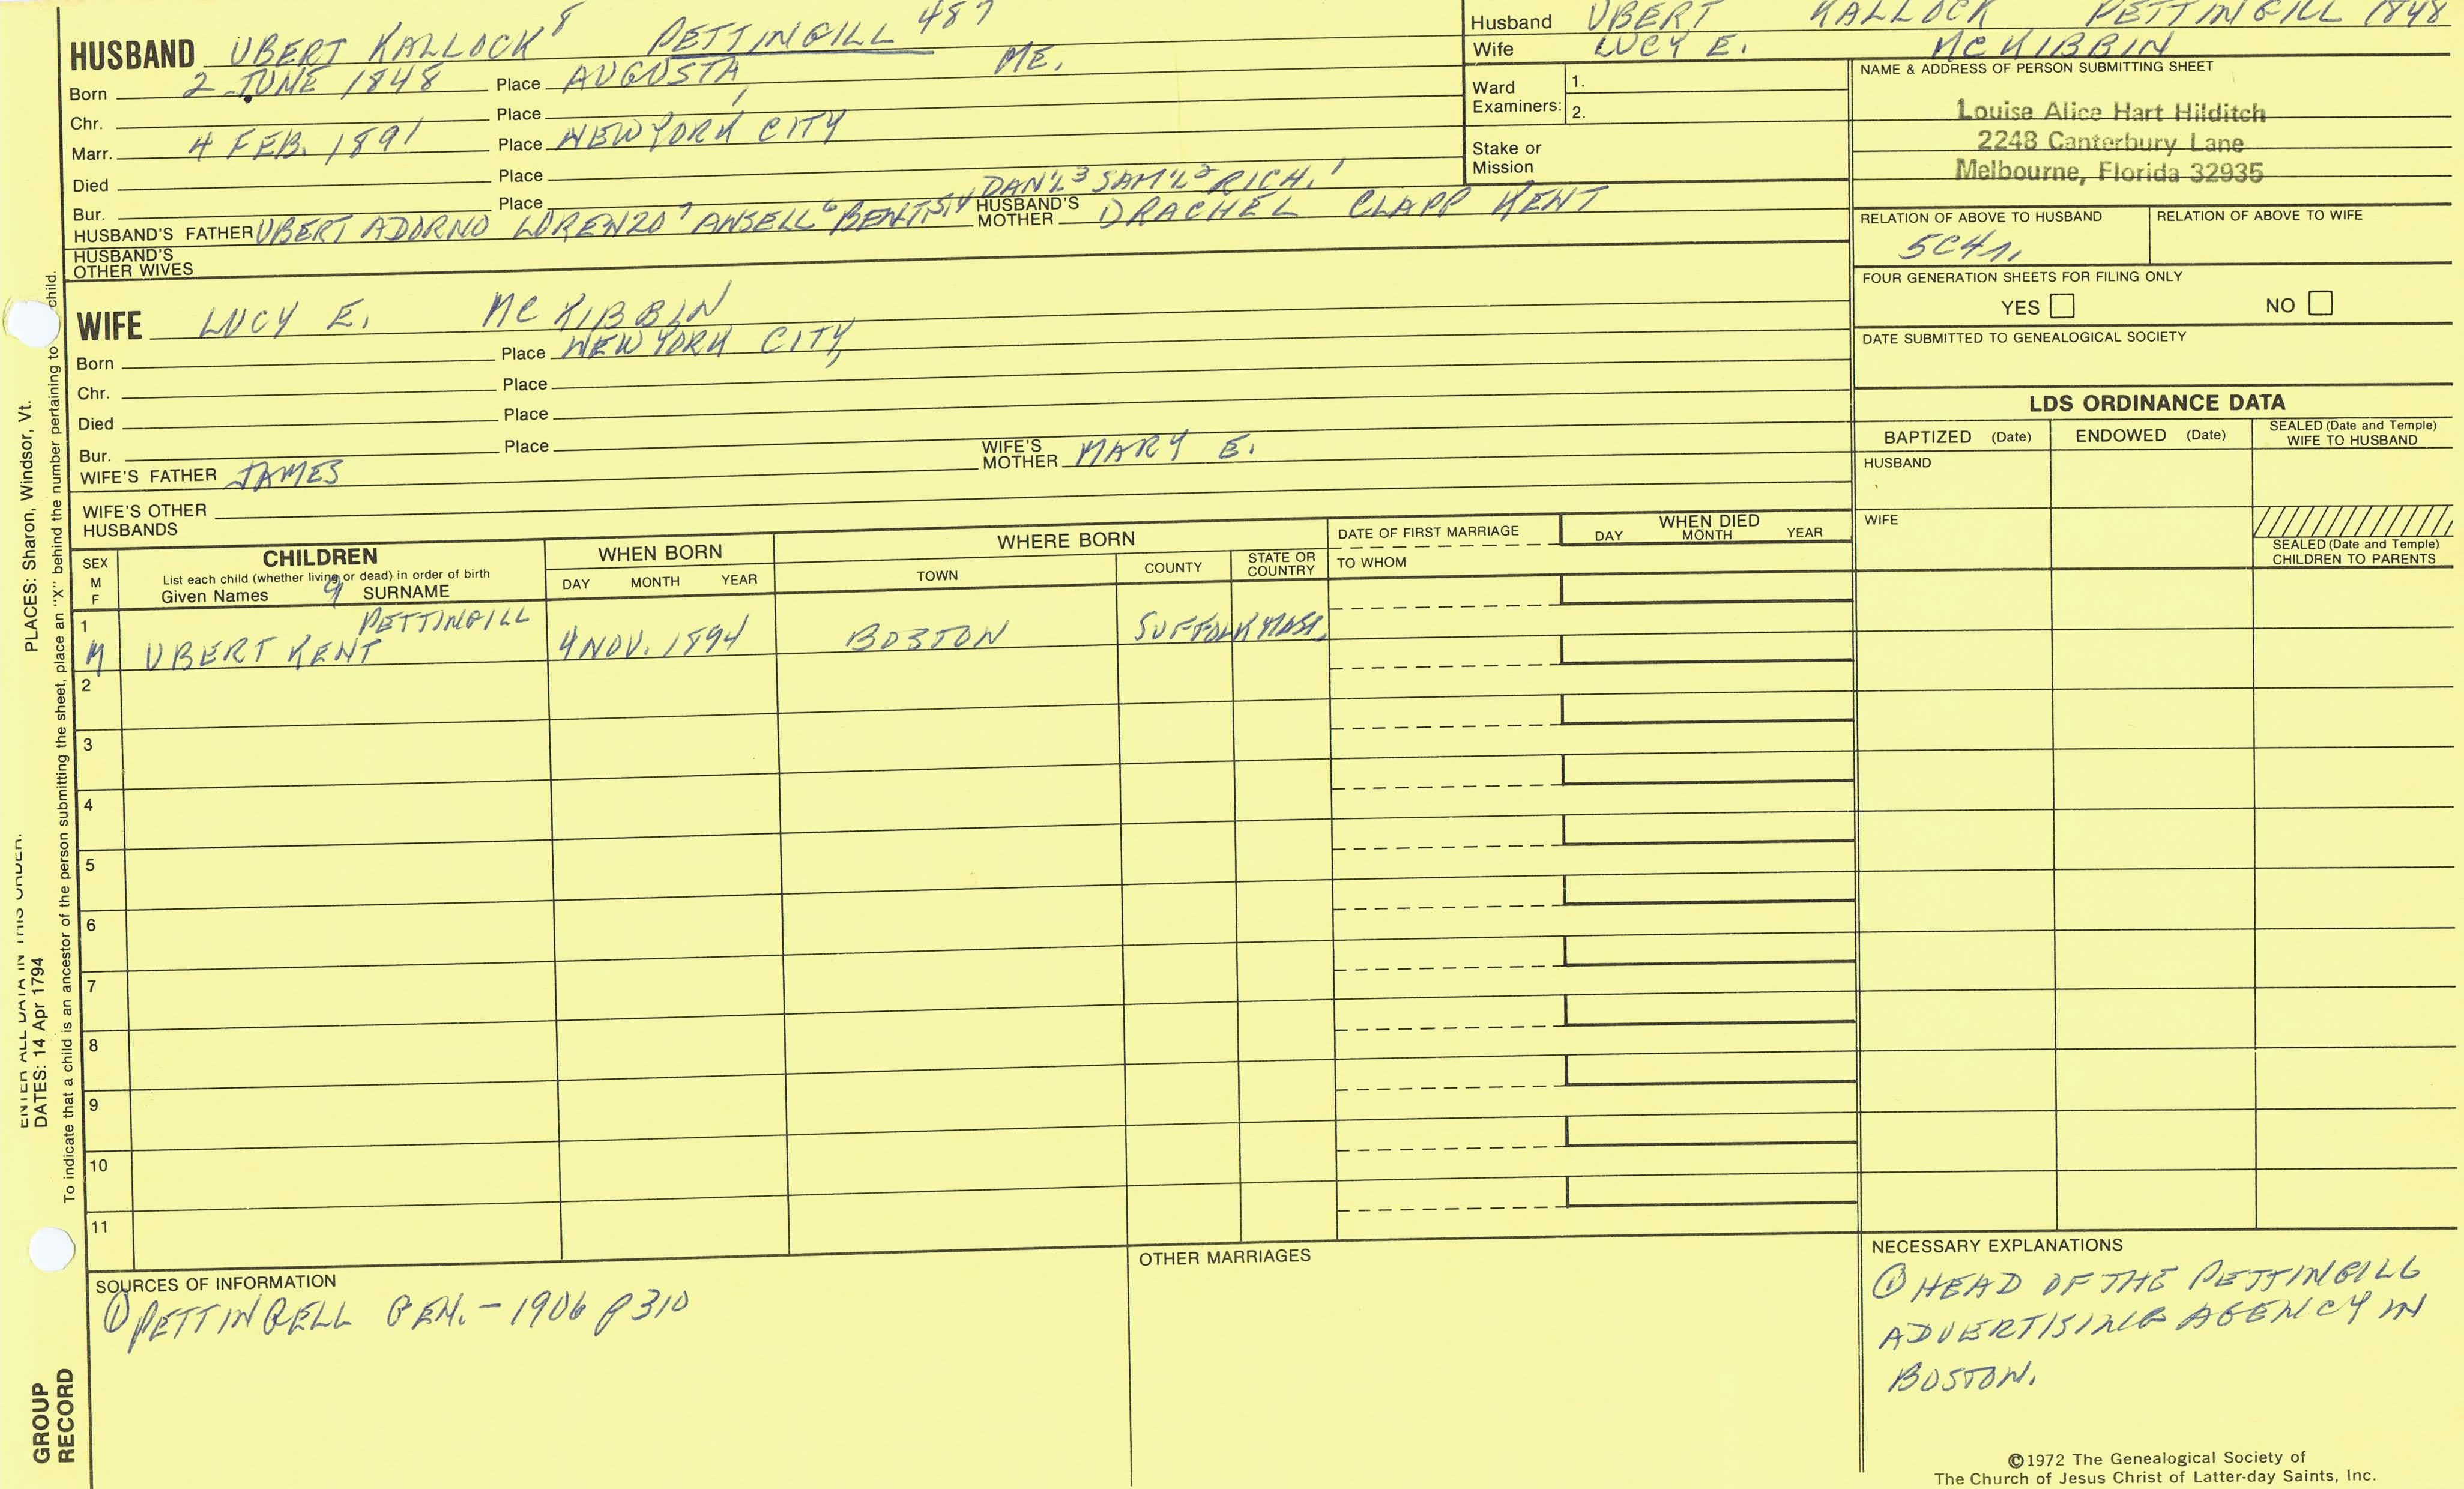 HUSBAND UBERT KALLOCK 8 PETTINGILL 487
Born 2 JUNE 1848 Place AUGUSTA, ME.
Chr. Place
Marr. 4 FEB. 1891 Place NEW YORK CITY
Died Place
Bur. Place
DAN'L 3 SAM'L 2 RICH. 1
HUSBAND'S FATHER UBERT ADORNO LORENZO 7 ANSELL 6 BENJ. 5,4 HUSBAND'S MOTHER DRACHEL CLAPP KENT
HUSBAND'S OTHER WIVES
WIFE LUCY E. MCKIBBIN
Born Place NEW YORK CITY,
Chr. Place
Died Place
Bur. Place
WIFE'S FATHER JAMES WIFE'S MOTHER MARY E.
WIFE'S OTHER HUSBANDS
Husband UBERT KALLOCK PETTINGILL 1848
Wife LUCY E. MCKIBBIN
Ward Examiners: 1.
2.
Stake or Mission
NAME & ADDRESS OF PERSON SUBMITTING SHEET
Louise Alice Hart Hilditch
2248 Canterbury Lane
Melbourne, Florida 32935
RELATION OF ABOVE TO HUSBAND RELATION OF ABOVE TO WIFE
5C4r.
FOUR GENERATION SHEETS FOR FILING ONLY
YES NO
DATE SUBMITTED TO GENEALOGICAL SOCIETY
LDS ORDINANCE DATA
BAPTIZED (Date) ENDOWED (Date) SEALED (Date and Temple) WIFE TO HUSBAND
HUSBAND
WIFE
SEALED (Date and Temple) CHILDREN TO PARENTS
SEX M F
CHILDREN
List each child (whether living or dead) in order of birth
Given Names 9 SURNAME
WHEN BORN
DAY MONTH YEAR
WHERE BORN
TOWN COUNTY STATE OR COUNTRY
DATE OF FIRST MARRIAGE
TO WHOM
WHEN DIED
DAY MONTH YEAR
1 PETTINGILL
M UBERT KENT 4 NOV. 1894 BOSTON SUFFOLK MASS.
2
3
4
5
6
7
8
9
10
11
SOURCES OF INFORMATION
① PETTINGELL GEN. - 1906 p 310
OTHER MARRIAGES
NECESSARY EXPLANATIONS
① HEAD OF THE PETTINGILL
ADVERTISING AGENCY IN
BOSTON.
©1972 The Genealogical Society of
The Church of Jesus Christ of Latter-day Saints, Inc.
ENTER ALL DATA IN THIS ORDER.
DATES: 14 Apr 1794 PLACES: Sharon, Windsor, Vt.
To indicate that a child is an ancestor of the person submitting the sheet, place an "X" behind the number pertaining to child.
GROUP
RECORD